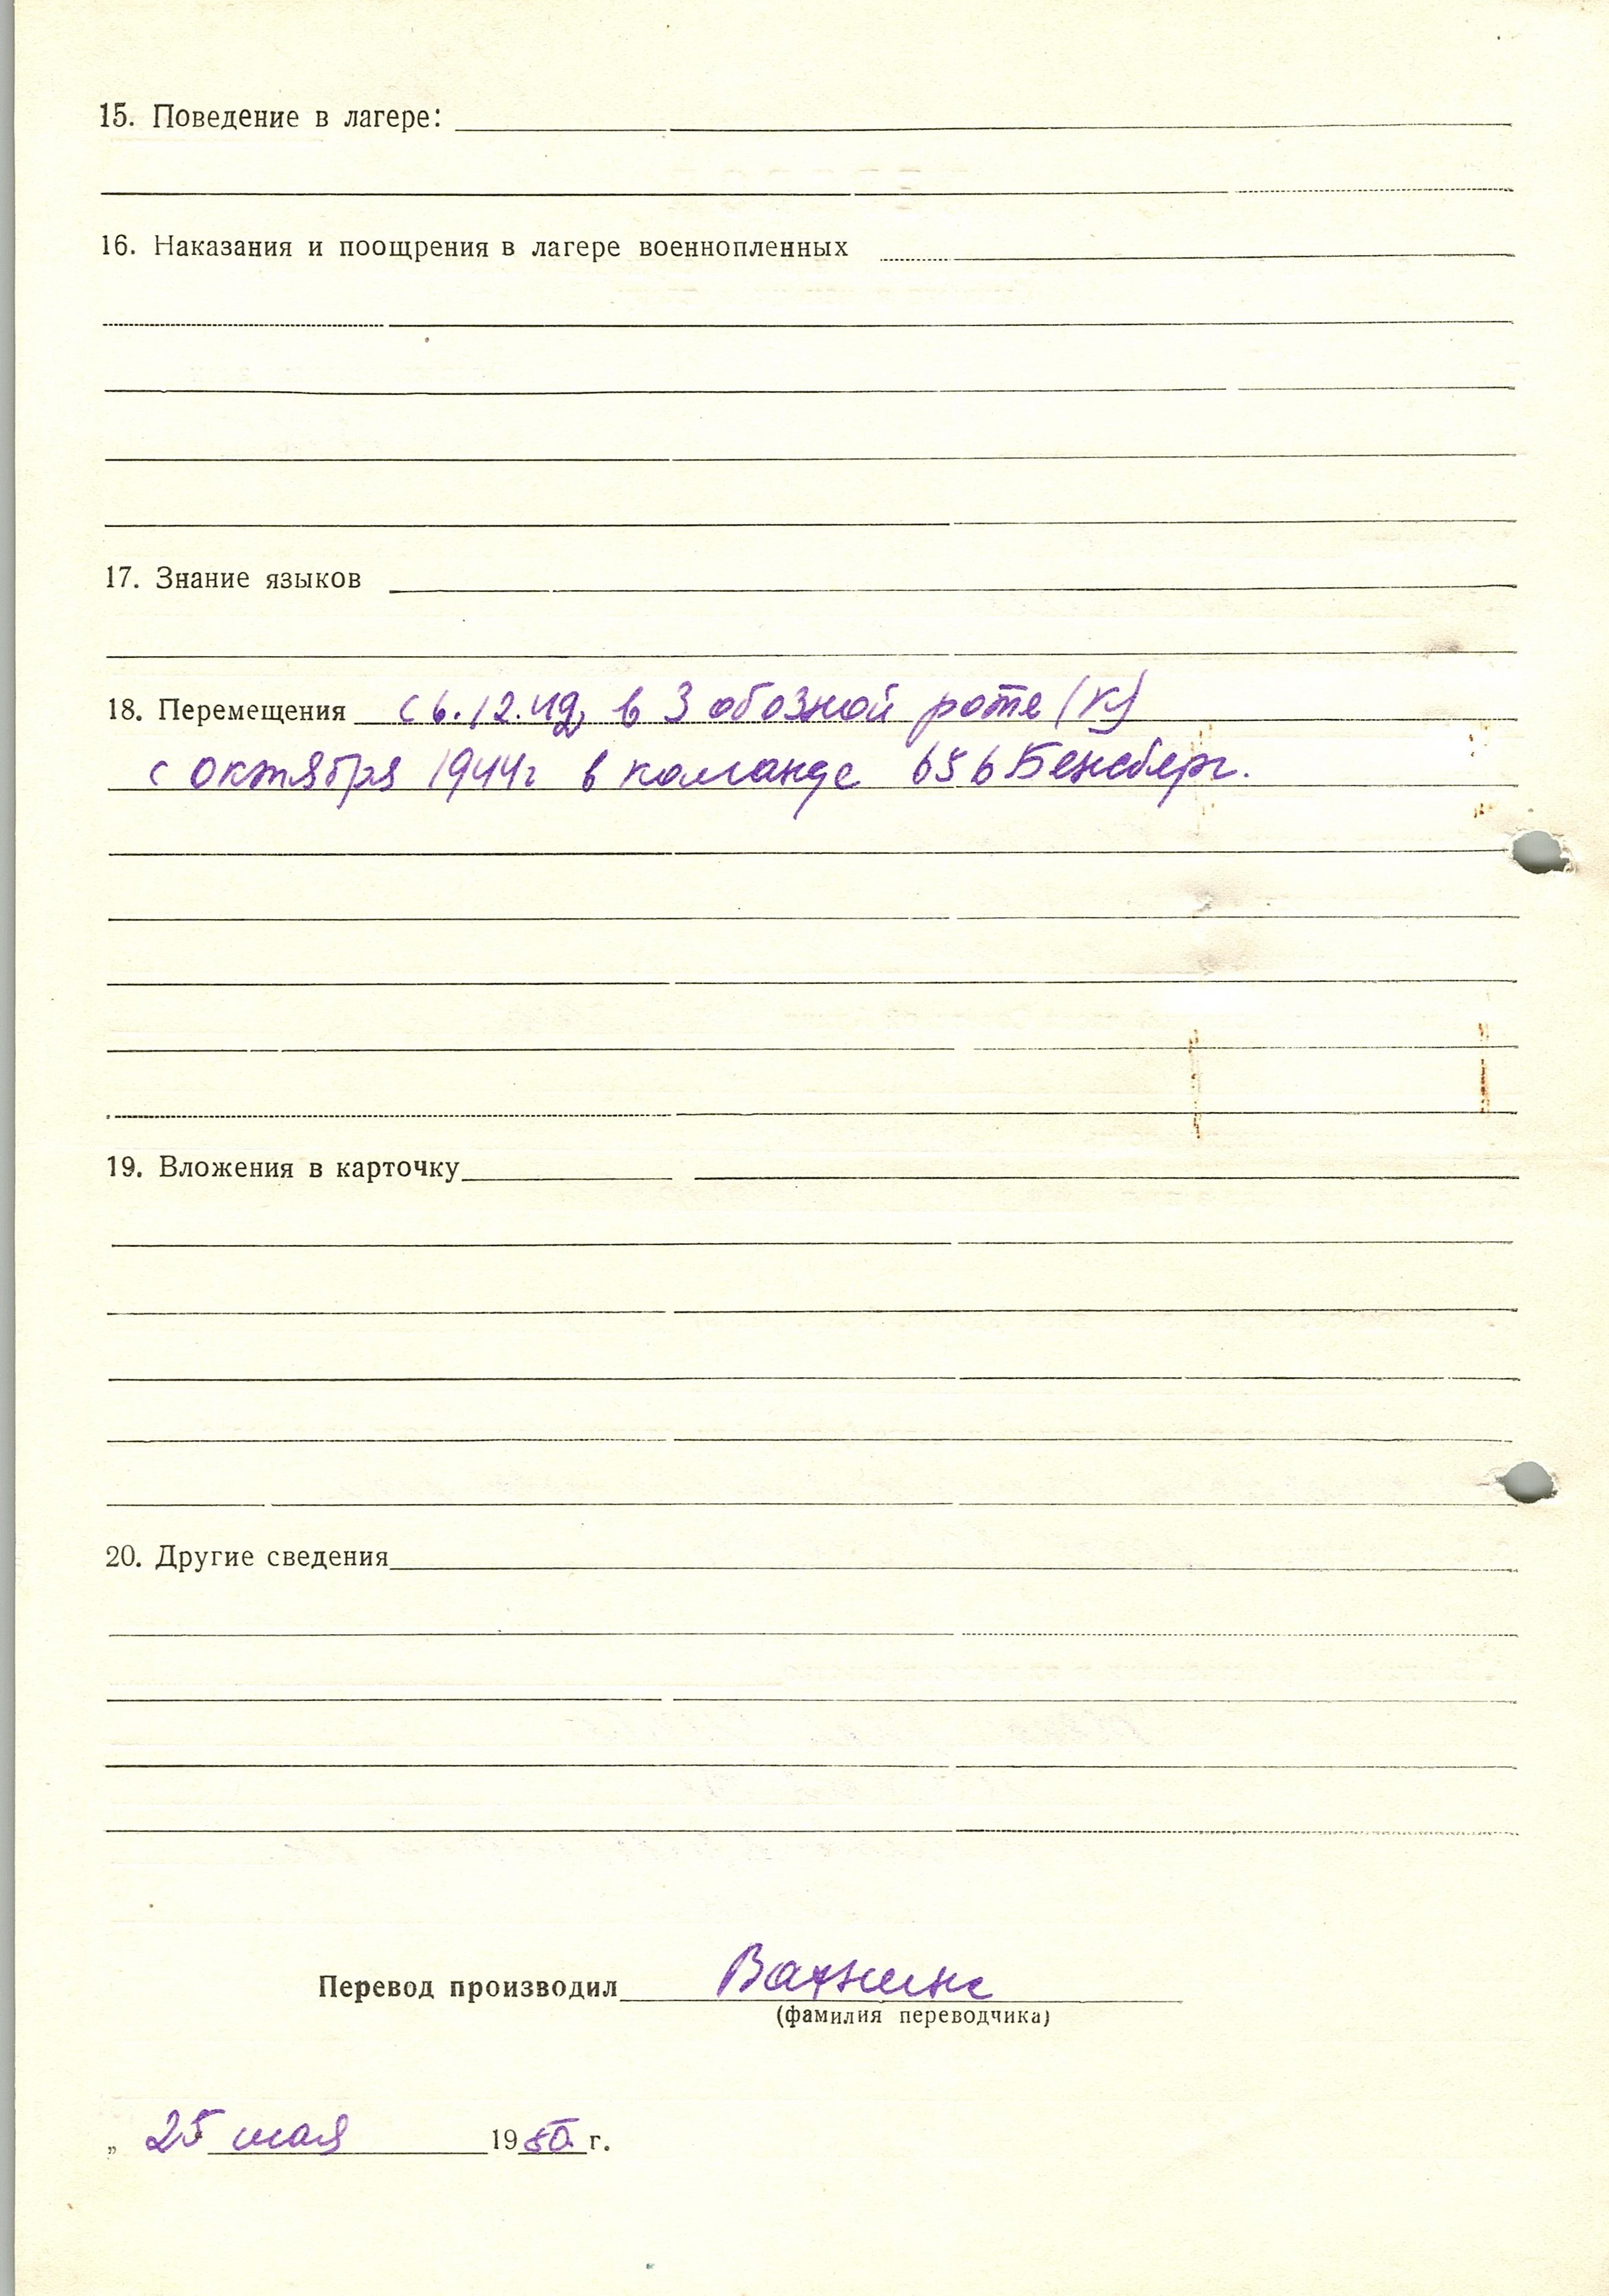 15. Поведение в лагере:
16. Наказания и поощрения в лагере военнопленных
17. Знание языков
18. Перемещения с 6.12.42, в 3 обозной роте (К)
с октября 1944г в команде 656 Бенсберг.
19. Вложения в карточку
20. Другие сведения
Перевод производил
(фамилия переводчика)
„ 25 мая 1950 г.